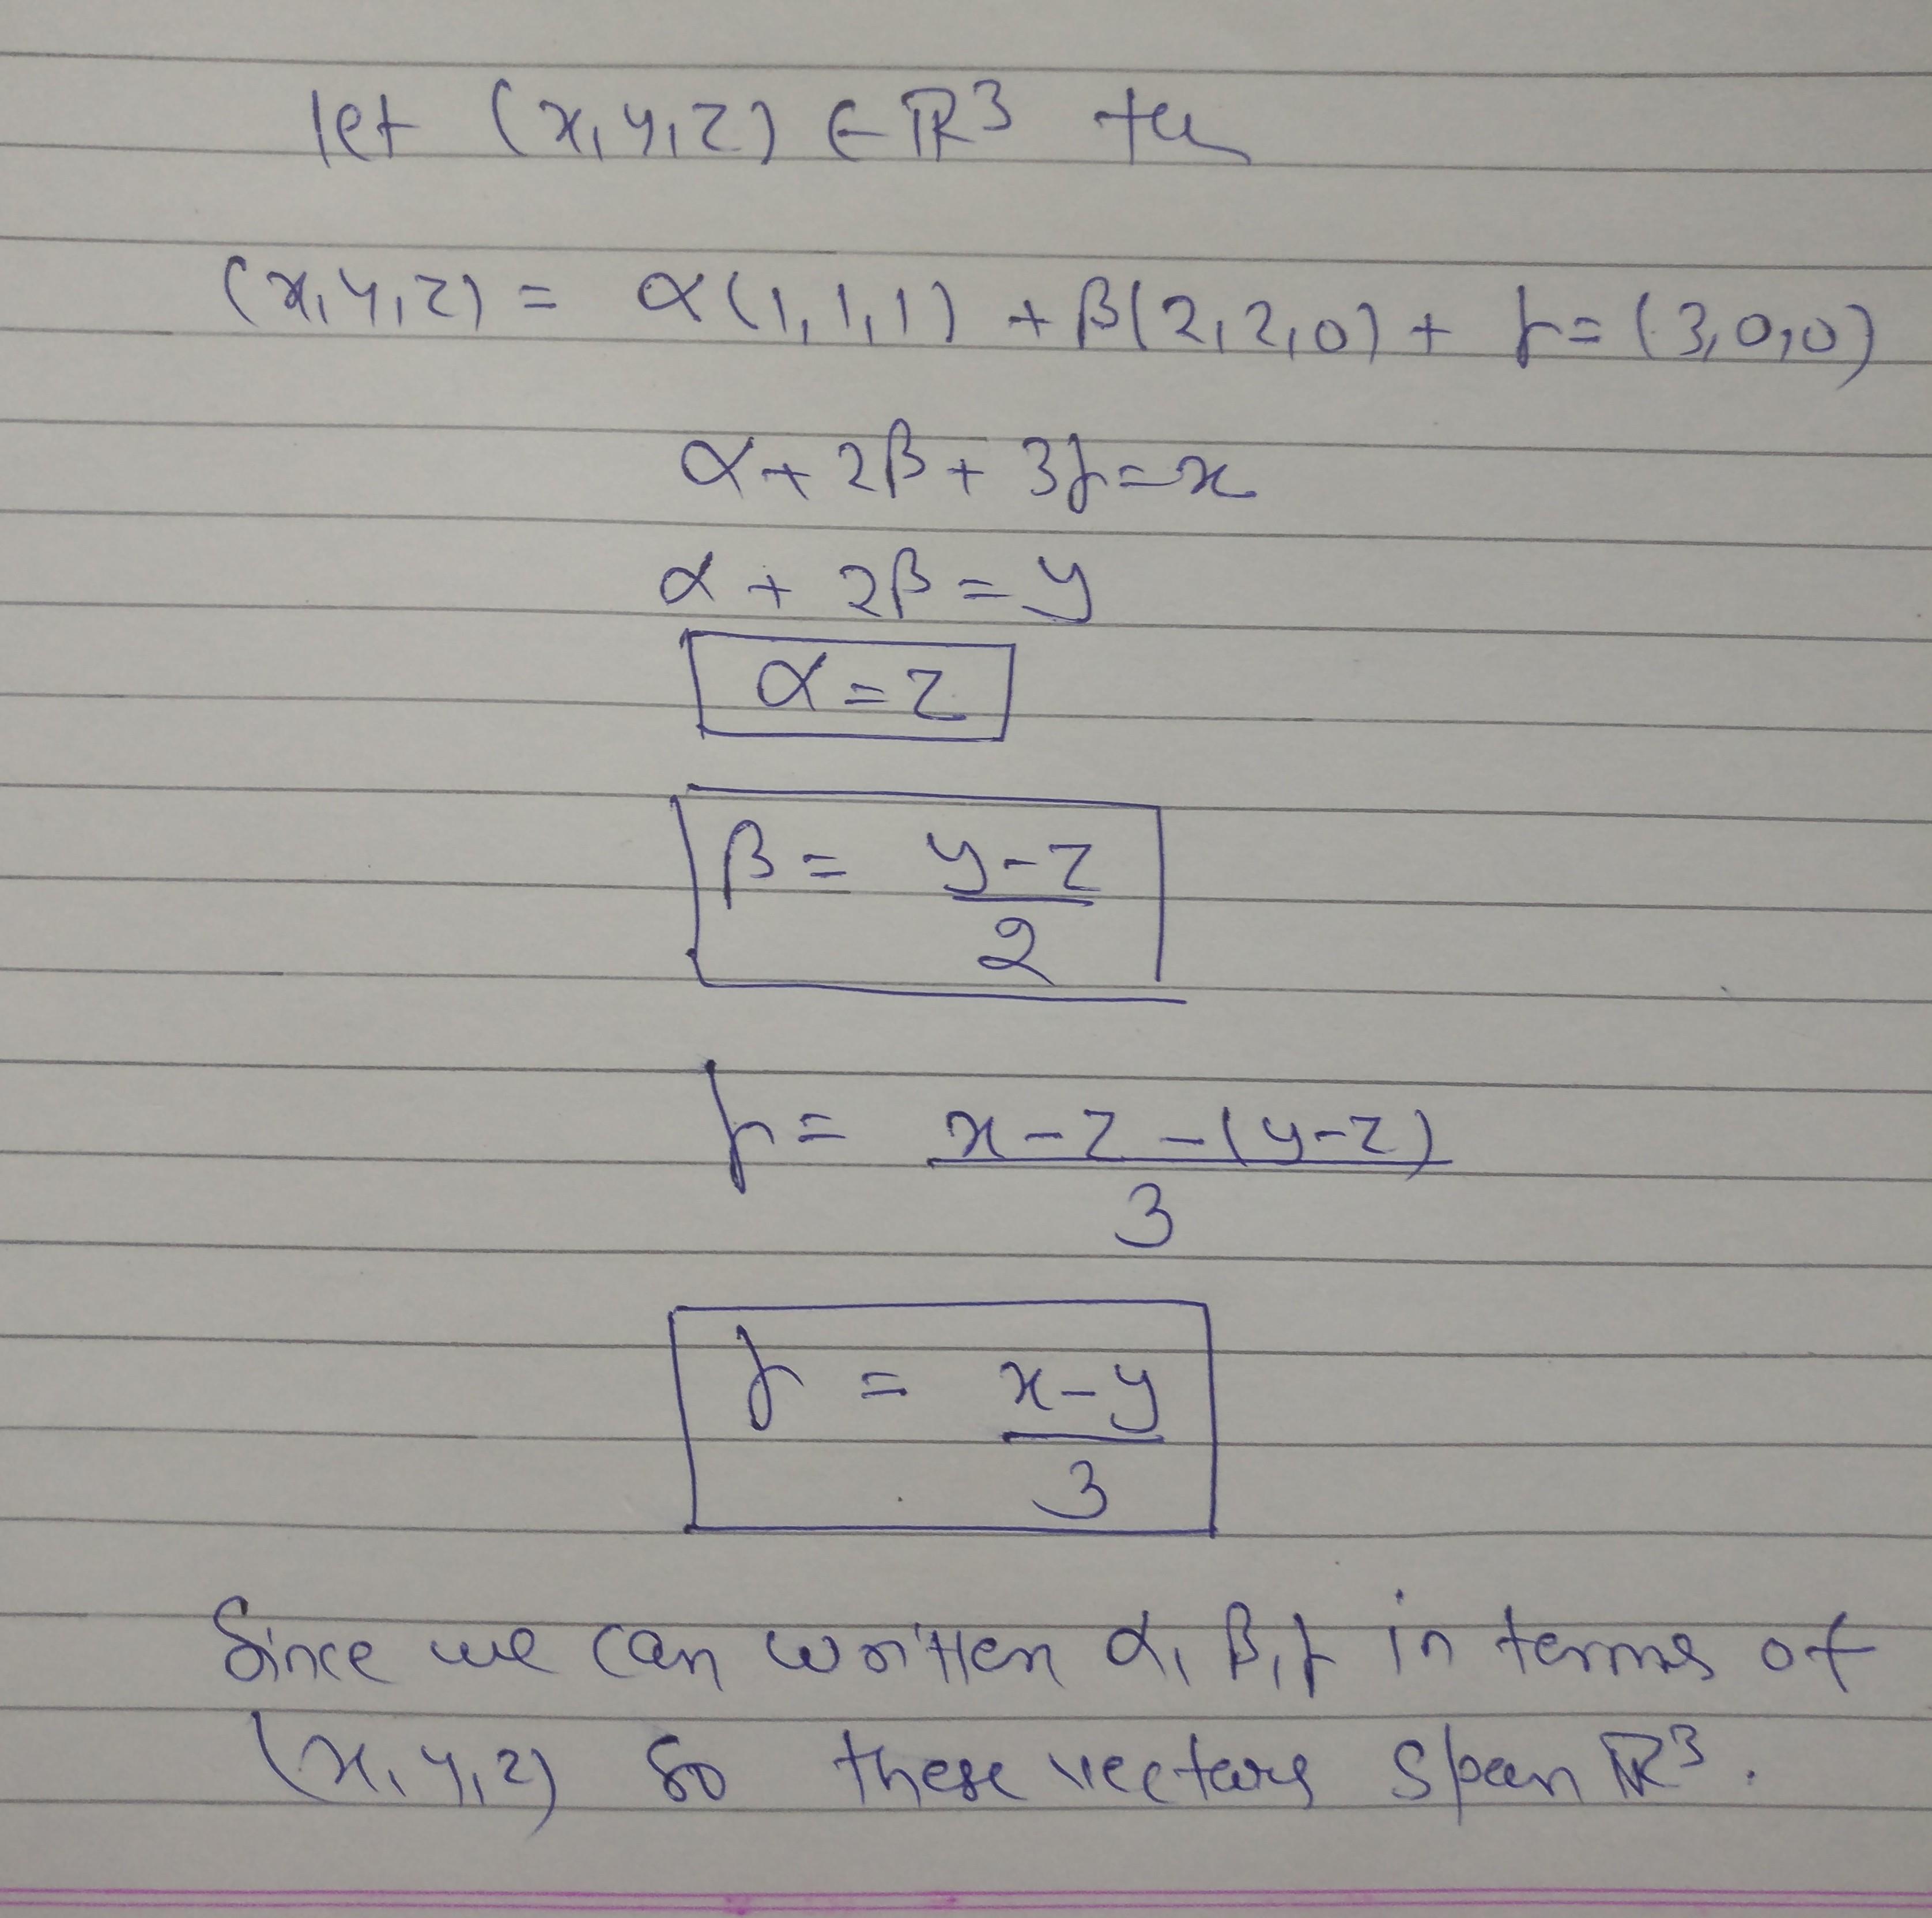 let (x,y,z) ∈ ℝ³ the
(x,y,z) = α(1,1,1) + β(2,2,0) + γ=(3,0,0)
α + 2β + 3γ = x
α + 2β = y
α = z
β = y-z
2
γ = x-z-(y-z)
3
γ = x-y
3
Since we can written α, β, γ in terms of
(x,y,z) so these vectors span ℝ³.